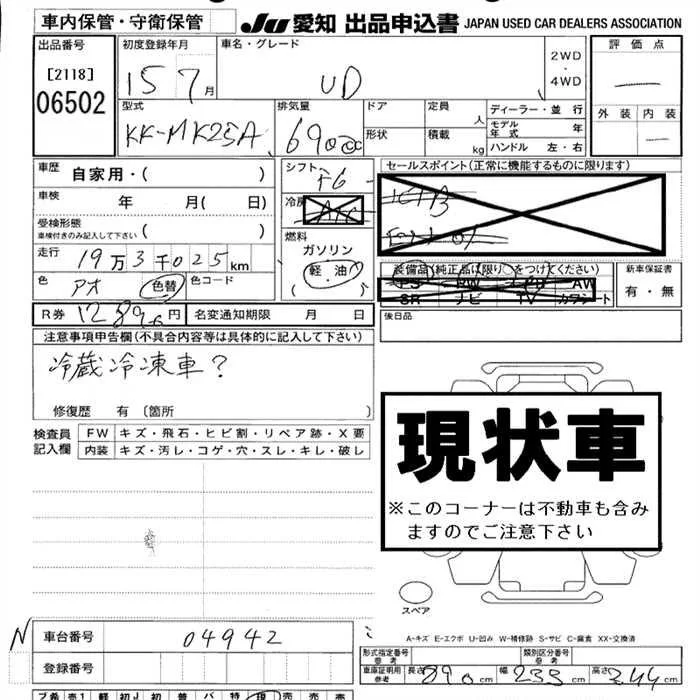 車内保管・守衛保管
JU 愛知 出品申込書 JAPAN USED CAR DEALERS ASSOCIATION
出品番号
[2118]
06502
初度登録年月
15 7月
車名・グレード
UD
2WD
・
4WD
評価点
—
外装 内装
—
型式
KK-MK25A
排気量
6900cc
ドア
形状
定員 人
積載 kg
ディーラー・並行
モデル年式 年
ハンドル 左・右
車歴 自家用・( )
車検 年 月( 日)
受検形態
車検付きのみ記入して下さい ( )
走行 19万3千025km
色 アオ 色替 色コード
シフト F6
冷房 A/C
燃料
ガソリン
軽・油
( )
セールスポイント(正常に機能するものに限ります)
装備品(純正品は限り○をつけてください)
PS PW AW
SR ナビ TV カワシート
新車保証書
有・無
R券 12890円 名変通知期限 月 日
後日品
注意事項申告欄(不具合内容等は具体的に記入して下さい)
冷蔵冷凍車?
修復歴 有 〔箇所 〕
検査員記入欄
FW キズ・飛石・ヒビ割・リペア跡・X要
内装 キズ・汚レ・コゲ・穴・スレ・キレ・破レ
現状車
※このコーナーは不動車も含み
ますのでご注意下さい
スペア
A-キズ E-エクボ U-凹み W-補修跡 S-サビ C-腐食 XX-交換済
N 車台番号 04942
登録番号
形式指定番号 参考
類別区分番号 参考
車庫証明用 参考 長さ 890cm 幅 233cm 高さ 344cm